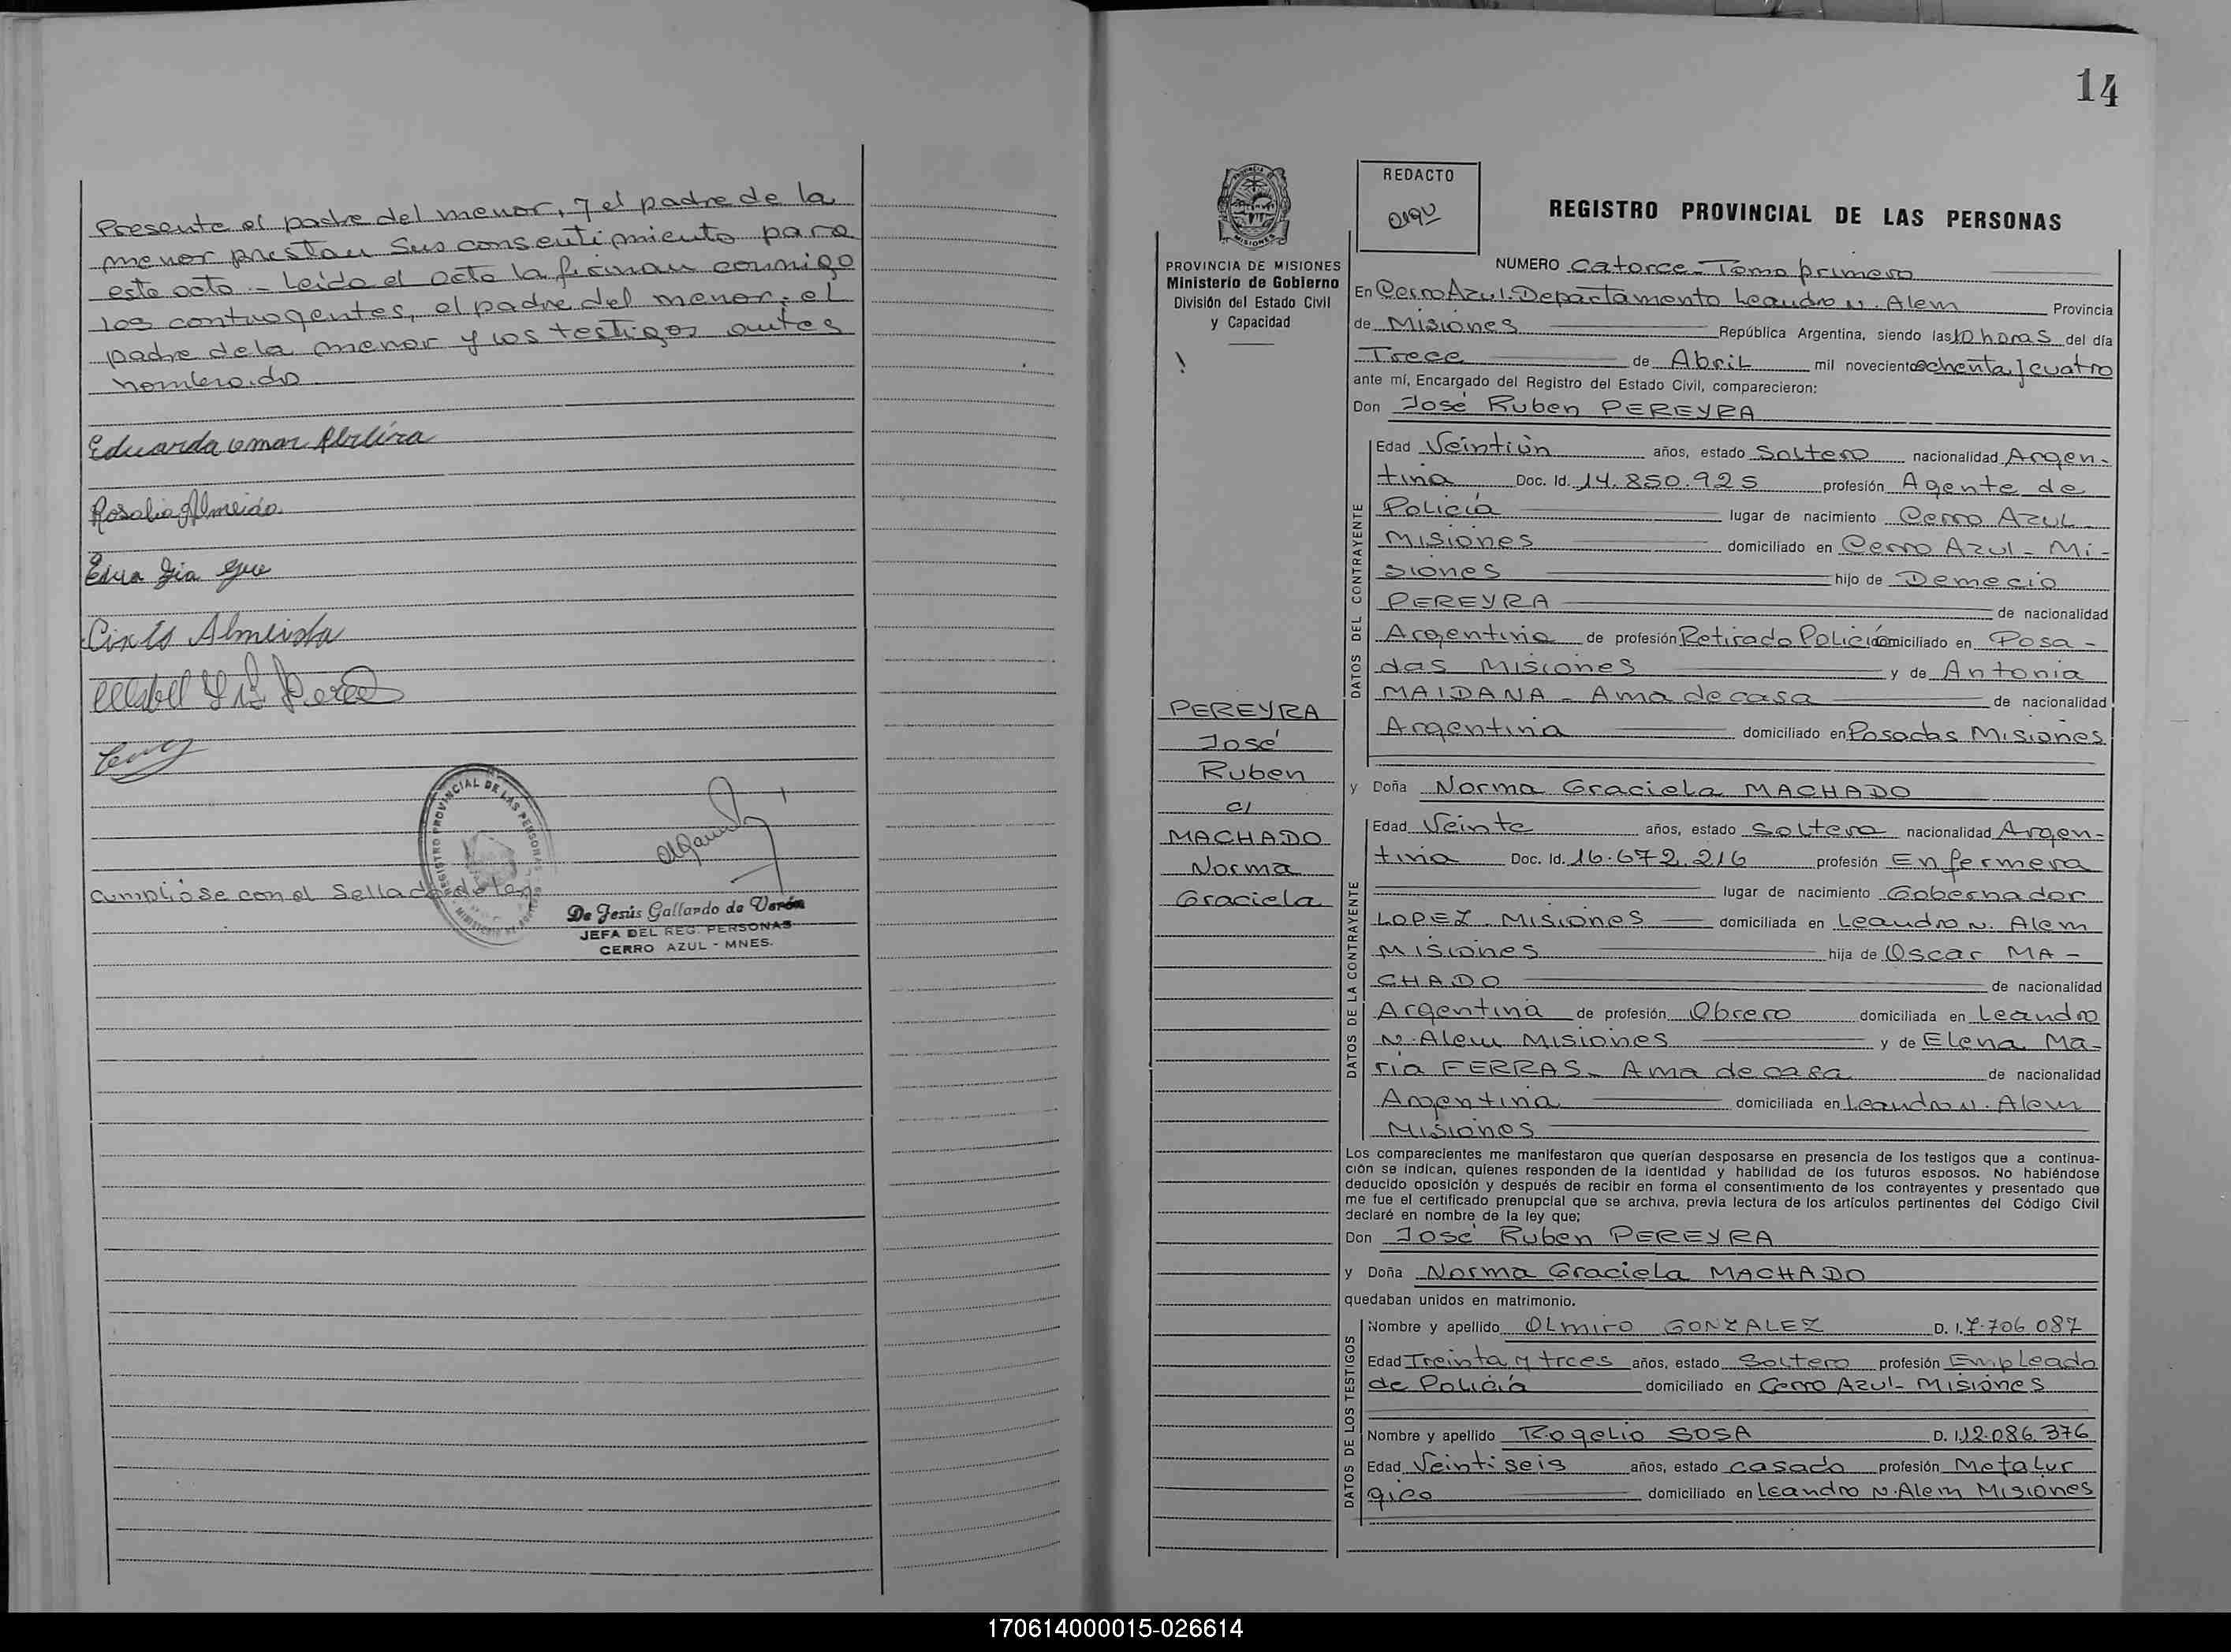 Presente el padre del menor, y el padre de la
menor prestan sus consentimiento para
este acto - Leida el acta la firman conmigo
los contrayentes, el padre del menor, el
padre de la menor y los testigos antes
nombrado
Rosalia Almeida
Almeida
REGISTRO PROVINCIAL DE LAS PERSONAS
Cumpliose con el Sellado de Ley
De Jesús Gallardo de Verón
JEFA DEL REG. PERSONAS
CERRO AZUL - MNES.
14
PROVINCIA DE MISIONES
Ministerio de Gobierno
División del Estado Civil
y Capacidad
PEREYRA
José
Ruben
c/
MACHADO
Norma
Graciela
REDACTO
REGISTRO PROVINCIAL DE LAS PERSONAS
NUMERO Catorce - Tomo primero
En Cerro Azul. Departamento Leandro N. Alem Provincia
de Misiones República Argentina, siendo las 10 horas del día
Trece de Abril mil novecientos ochenta y cuatro
ante mí, Encargado del Registro del Estado Civil, comparecieron:
Don José Ruben PEREYRA
DATOS DEL CONTRAYENTE
Edad Veintiún años, estado Soltero nacionalidad Argen-
tina Doc. Id. 14.850.925 profesión Agente de
Policía lugar de nacimiento Cerro AZUL
Misiones domiciliado en Cerro Azul - Mi-
siones hijo de Demecio
PEREYRA de nacionalidad
Argentina de profesión Retirado Policía domiciliado en Posa-
das Misiones y de Antonia
MAIDANA - Ama de casa de nacionalidad
Argentina domiciliado en Posadas Misiones
y Doña Norma Graciela MACHADO
DATOS DE LA CONTRAYENTE
Edad Veinte años, estado Soltera nacionalidad Argen-
tina Doc. Id. 16.672.216 profesión Enfermera
lugar de nacimiento Gobernador
LOPEZ - Misiones domiciliada en Leandro N. Alem
Misiones hija de Oscar MA-
CHADO de nacionalidad
Argentina de profesión Obrero domiciliada en Leandro
N. Alem Misiones y de Elena Ma-
ria FERRAS - Ama de casa de nacionalidad
Argentina domiciliada en Leandro N. Alem
Misiones
Los comparecientes me manifestaron que querían desposarse en presencia de los testigos que a continua-
ción se indican, quienes responden de la identidad y habilidad de los futuros esposos. No habiéndose
deducido oposición y después de recibir en forma el consentimiento de los contrayentes y presentado que
me fue el certificado prenupcial que se archiva, previa lectura de los artículos pertinentes del Código Civil
declaré en nombre de la ley que;
Don José Ruben PEREYRA
y Doña Norma Graciela MACHADO
quedaban unidos en matrimonio.
DATOS DE LOS TESTIGOS
Nombre y apellido OLmiro GONZALEZ D. I. 7.706.087
Edad Treinta y trees años, estado Soltero profesión Empleado
de Policía domiciliado en Cerro Azul - Misiones
Nombre y apellido Rogelio SOSA D. I. 12.086.376
Edad Veintiseis años, estado casado profesión Metalur
gico domiciliado en Leandro N. Alem Misiones
170614000015-026614